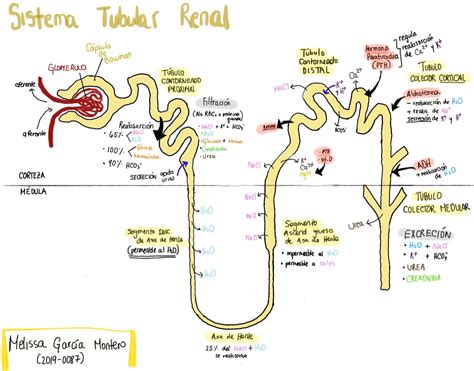 Sistema Tubular Renal
Cápsula de
Bowman
GLOMÉRULO
aferente
aferente
TÚBULO
CONTORNEADO
PROXIMAL
Filtración
(No RBCs + proteínas
grandes)
• NaCl
• K+ + HCO3-
• Glucosa +
• Creatinina
• Urea
Reabsorción
• 65%
NaCl
H2O
K+
• 100%
glucosa
aminoácidos
• 90% HCO3-
SECRECIÓN
CORTEZA
MÉDULA
Segmento Desc
de Asa de Henle
(permeable al H2O)
H2O
H2O
H2O
H2O
Asa de Henle
25% del NaCl + H2O
se reabsorbe
Segmento
Ascend grueso
de Asa de Henle
• impermeable al H2O
• permeable a sales
NaCl
NaCl
NaCl
NaCl
K+
Ca2+
PTH
Túbulo
Contorneado
DISTAL
NaCl
K+
H+
HCO3-
Ca2+
Hormona
Paratiroidea
(PTH)
regula
reabsorción
de Ca2+
K+
TUBULO
COLECTOR CORTICAL
Aldosterona
- reabsorción de H2O
- reabsorbe de NaCl
- secreción de K+
ADH
→ reabsorción
de H2O
TUBULO
COLECTOR MEDULAR
Urea
EXCRECIÓN
• H2O + NaCl
K+ + HCO3-
• UREA
• CREATININA
Melissa García Montero
(2019-0087)